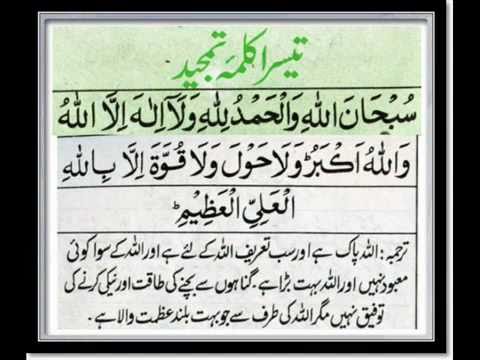 تیسرا کلمہ تمجید
سُبْحَانَ اللهِ وَالْحَمْدُ لِلّٰهِ وَلَآ اِلٰهَ اِلَّا اللهُ
وَاللهُ اَكْبَرُ ؕ وَلَا حَوْلَ وَلَا قُوَّةَ اِلَّا بِاللهِ
الْعَلِیِّ الْعَظِیْمِ ؕ
ترجمہ : اللہ پاک ہے اور سب تعریف اللہ کے لئے ہے اور اللہ کے سوا کوئی
معبود نہیں اور اللہ بہت بڑا ہے۔ گناہوں سے بچنے کی طاقت اور نیکی کرنے کی
توفیق نہیں مگر اللہ کی طرف سے جو بہت بلند عظمت والا ہے۔